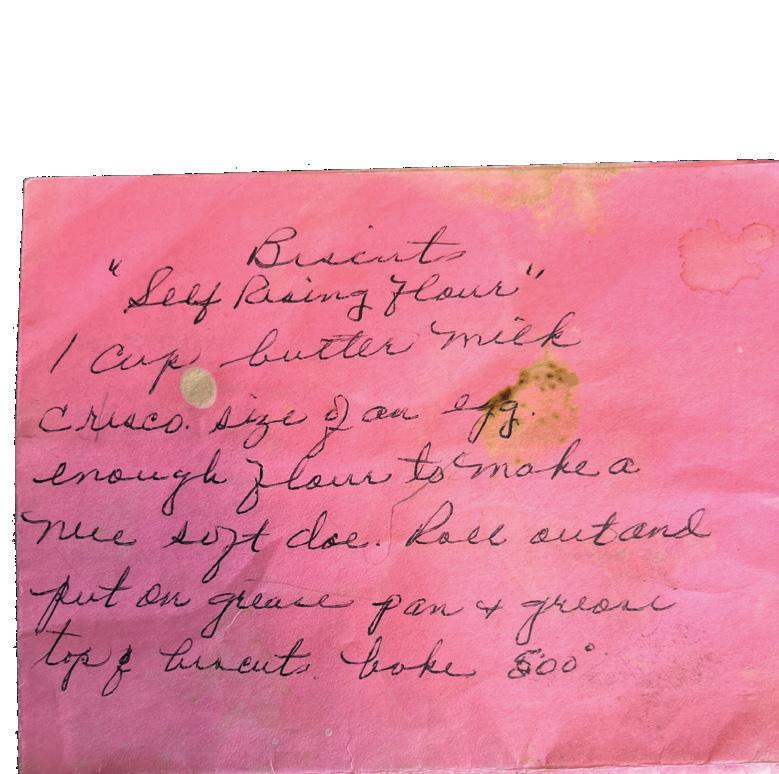 Biscuts
"Self Rising Flour"
1 cup butter milk
Crisco. size of an egg.
enough flour to make a
nice soft doe. Roll out and
put on grease pan + grease
top of biscuts. bake 500°